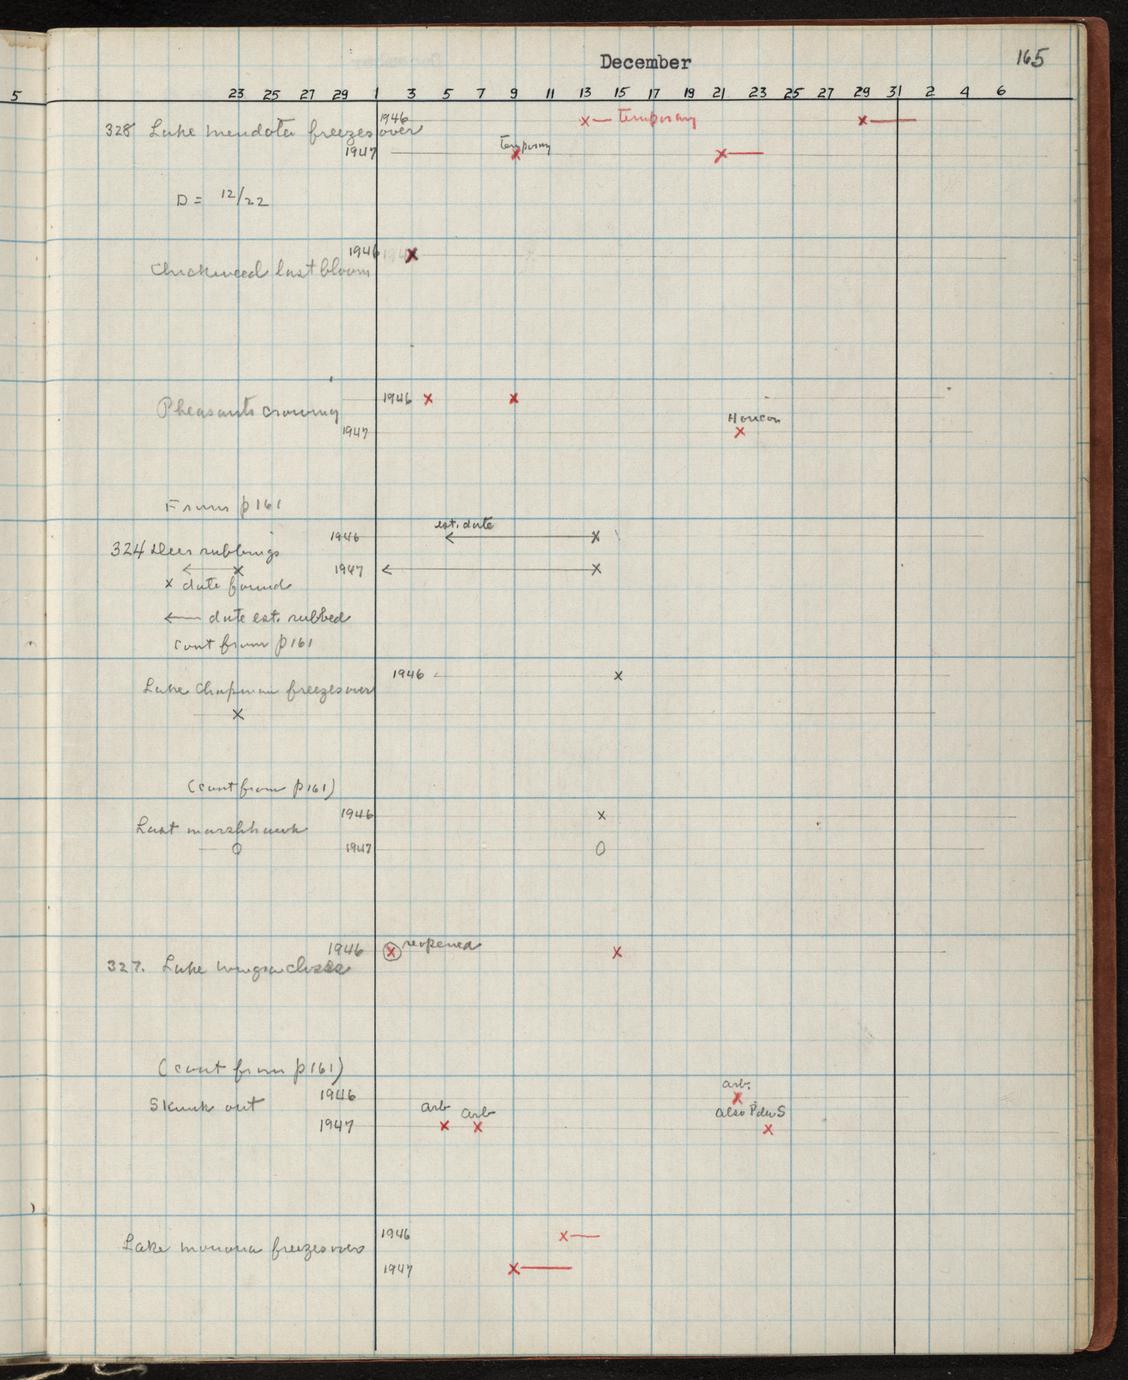 December
165
5 23 25 27 29 1 3 5 7 9 11 13 15 17 19 21 23 25 27 29 31 2 4 6
328 Lake Mendota freezes over
1946 x— temporary x—
1947 temporary x x—
D = 12/22
1946 x
Chickweed last bloom
Pheasants crowing
1946 x x
Horicon
1947 x
From p 161
est. date
324 Deer rubbings
1946 x
1947 x
x
x date found
← date est. rubbed
cont from p 161
1946 x
Lake Chapman freezes over
x
(cont from p 161)
1946 x
Last marshhawk
0 1947 0
1946 x reopened x
327. Lake Wingra
(cont from p 161)
arb.
Skunk out 1946 x
arb arb also P du S
1947 x x x
Lake Monona freezes over
1946 x—
1947 x—